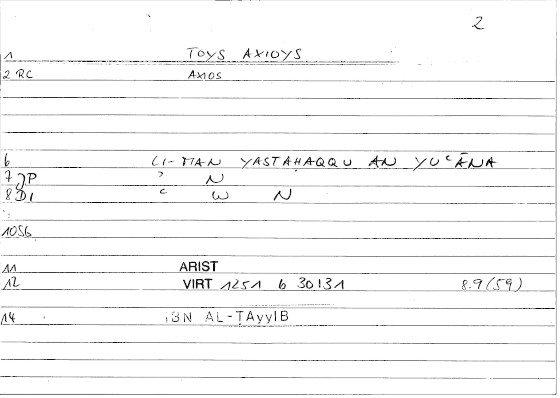 2
1 TOYS AXIOYS
2 RC AXIOS
6 LI-MAN YASTAḤAQQU AN YUʿĀNA
7 JP ʾ N
8 DI ʿ W N
1056
11 ARIST
12 VIRT 1251 b 30131 8.9 (59)
14 IBN AL-ṬAyyIB